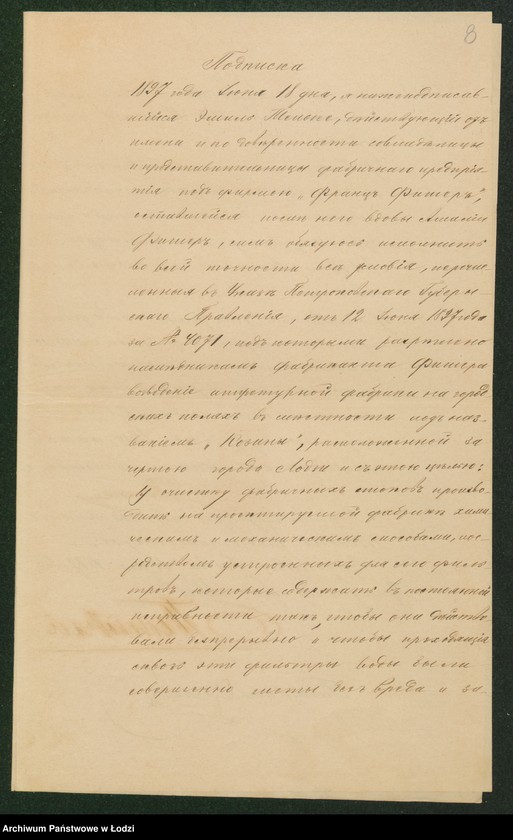 8
Подписка
1897 года Іюня 18 дня, я нижеподписав-
шійся Эмиль , дѣйствующій отъ
имени и по довѣренности совладѣлицы
и представительницы фабричнаго предпрія-
тія подъ фирмою „Францъ Фишеръ",
оставшейся послѣ него вдовы Амаліи
Фишеръ, симъ обязуюсь исполнить
во всей точности всѣ условія, перечис-
ленныя въ Указѣ Петроковскаго Губерн-
скаго Правленія, отъ 12 Іюня 1897 года
за № 4071, подъ которыми разрѣшено
наслѣдникамъ фабриканта Фишера
возведеніе аппретурной фабрики на город-
скихъ поляхъ въ мѣстности подъ наз-
ваніемъ „Козины", расположенной за
чертою города Лодзи и съ этою цѣлью:
1) очистку фабричныхъ стоковъ произво-
дить на проэктируемой фабрикѣ хими-
ческимъ и механическимъ способами, пос-
редствомъ устроенныхъ для сего филь-
тровъ, которые содержать въ постоянной
исправности такъ, чтобы они дѣйство-
вали безпрерывно и чтобы проходящія
сквозь эти фильтры воды были
совершенно чисты безъ вреда и за-
Archiwum Państwowe w Łodzi